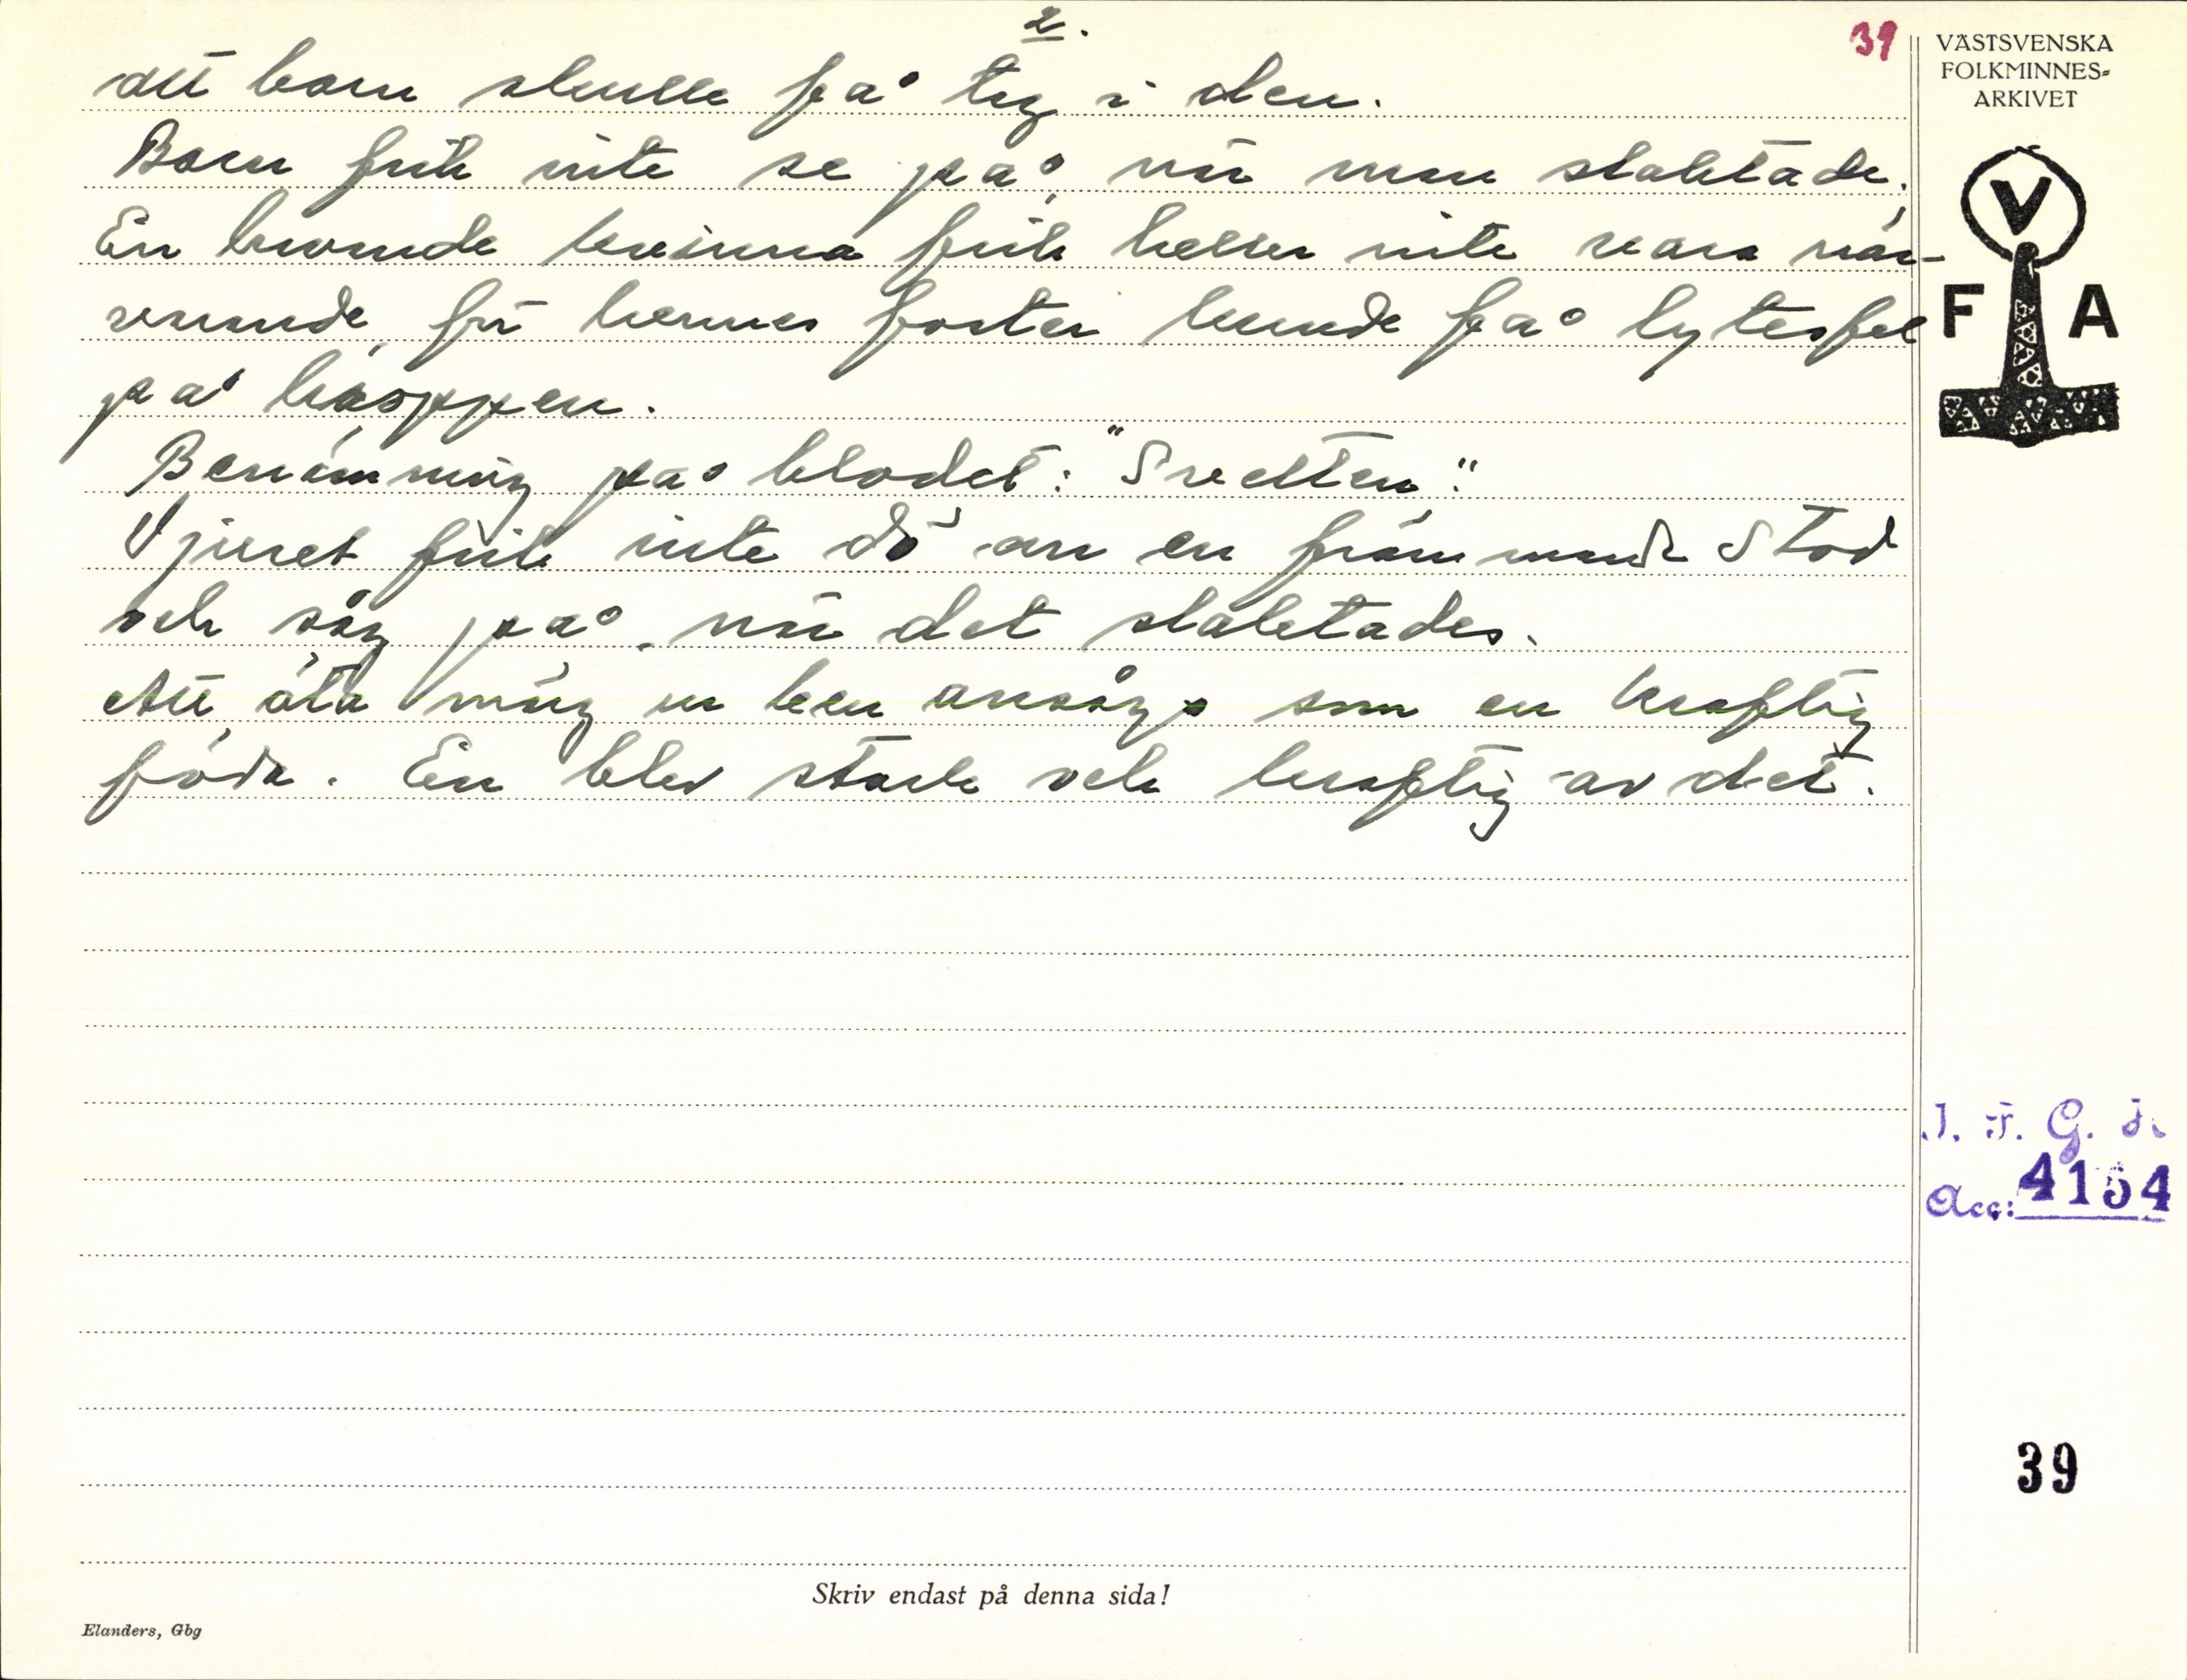 2.
39
att barn skulle få tag i den.
Barn fick inte se på, när man slaktade.
En havande kvinna fick heller inte vara när-
varande, för hennes foster kunde få lytesfel
på kroppen.
Benämning på blodet: "Svetten".
Djuret fick inte dö om en främmande stod
och såg på, när det slaktades.
Att äta märg ur ben ansågs som en kraftig
föda. En blev stark och kraftig av det.
VÄSTSVENSKA
FOLKMINNES-
ARKIVET
V
F A
I. F. G. H.
Acc: 4154
39
Skriv endast på denna sida!
Elanders, Gbg